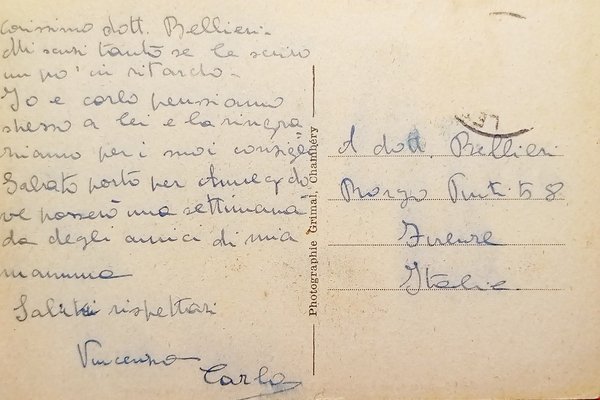 Carissimo dott. Bellieni.
Mi scusi tanto se le scrivo
un po' in ritardo -
Io e Carlo pensiamo
spesso a lei e la ringra
ziamo per i suoi consigli
Sabato parto per Annecy do
ve passerò una settimana
da degli amici di mia
mamma
Saluti rispettosi
Vincenzo
Carlo
Photographie Grimal, Chambéry
A dott. Bellieni
Borgo Pinti 58
Firenze
Italia